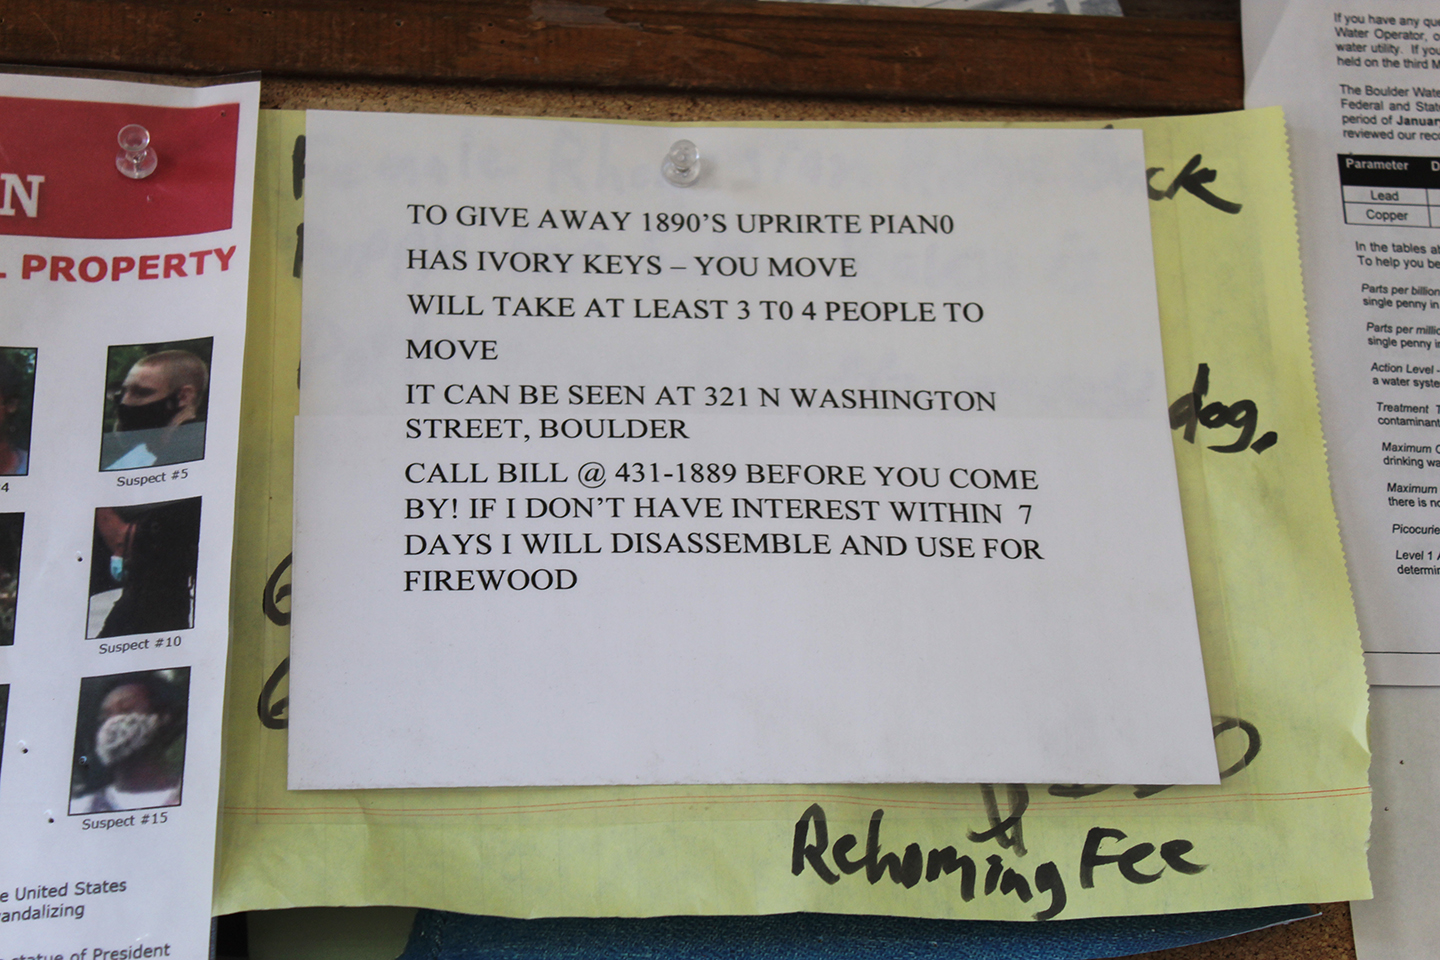 N
L PROPERTY
4
Suspect #5
Suspect #10
Suspect #15
e United States
andalizing
statue of President
ck
dog.
Rehoming Fee
TO GIVE AWAY 1890'S UPRIRTE PIAN0
HAS IVORY KEYS – YOU MOVE
WILL TAKE AT LEAST 3 T0 4 PEOPLE TO
MOVE
IT CAN BE SEEN AT 321 N WASHINGTON
STREET, BOULDER
CALL BILL @ 431-1889 BEFORE YOU COME
BY! IF I DON'T HAVE INTEREST WITHIN 7
DAYS I WILL DISASSEMBLE AND USE FOR
FIREWOOD
If you have any que
Water Operator, o
water utility. If you
held on the third M
The Boulder Wate
Federal and State
period of January
reviewed our reco
Parameter D
Lead
Copper
In the tables ab
To help you be
Parts per billion
single penny in
Parts per millio
single penny in
Action Level -
a water syste
Treatment T
contaminant
Maximum C
drinking wa
Maximum
there is no
Picocurie
Level 1 A
determin